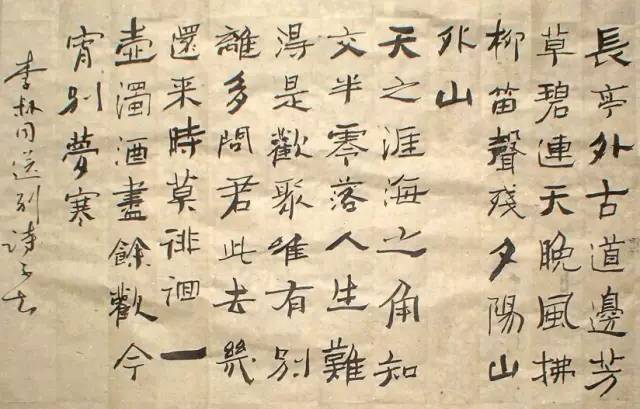 長亭外古道邊芳
草碧連天晚風拂
柳笛聲殘夕陽山
外山
天之涯海之角知
交半零落人生難
得是歡聚唯有别
離多問君此去幾
還来時莫徘徊一
壺濁酒盡餘歡今
宵别夢寒
李叔同送别詩